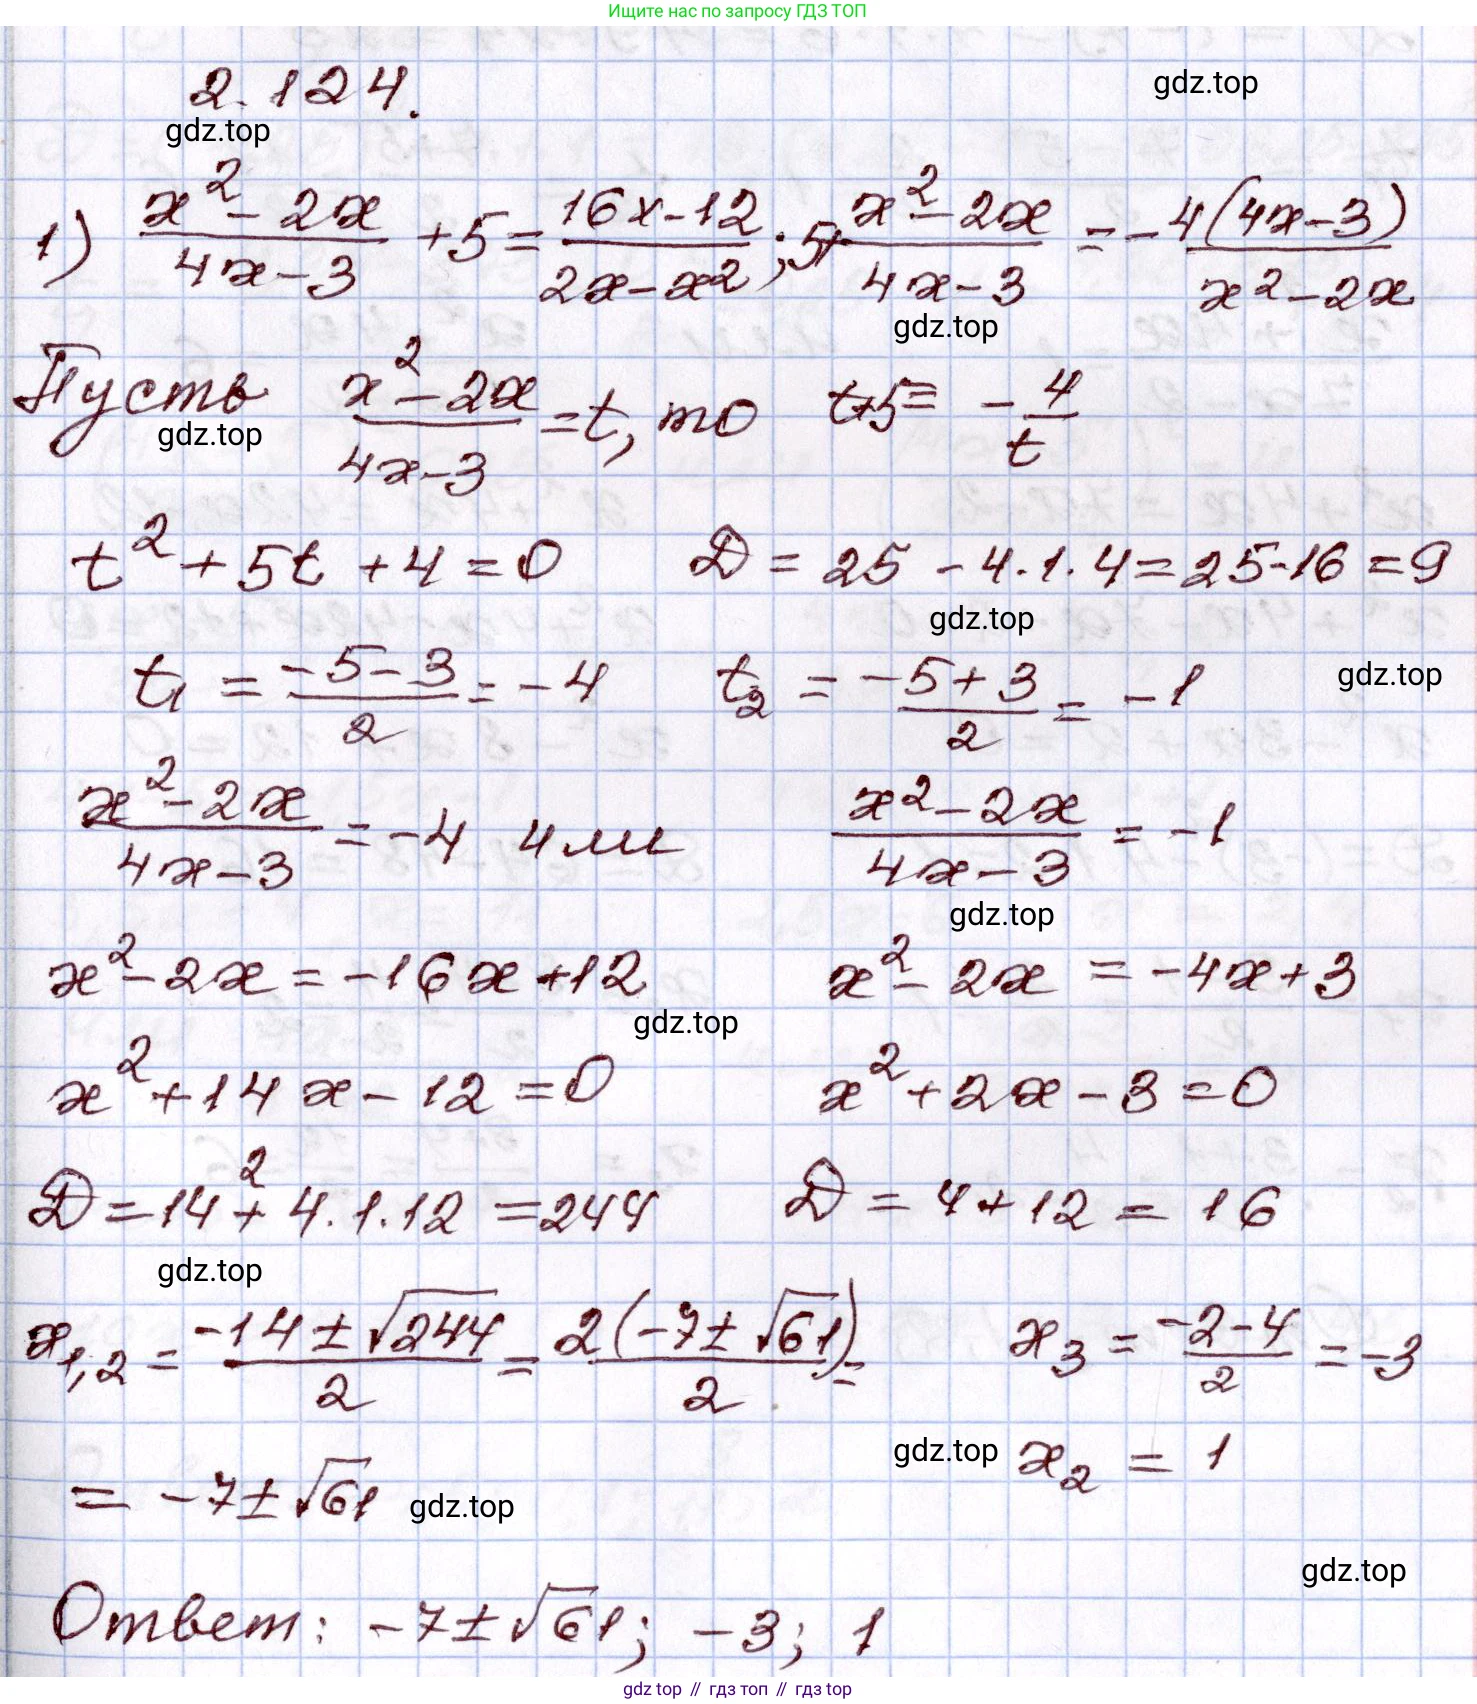 Ищите нас по запросу ГДЗ ТОП
2.124.
gdz.top
gdz.top
1) (x² - 2x)/(4x - 3) + 5 = (16x - 12)/(2x - x²); 5 + (x² - 2x)/(4x - 3) = - 4(4x - 3)/(x² - 2x)
gdz.top
Пусть (x² - 2x)/(4x - 3) = t, то t + 5 = - 4/t
gdz.top
t² + 5t + 4 = 0 D = 25 - 4·1·4 = 25 - 16 = 9
gdz.top
t₁ = (-5 - 3)/2 = -4 t₂ = (-5 + 3)/2 = -1
gdz.top
(x² - 2x)/(4x - 3) = -4 или (x² - 2x)/(4x - 3) = -1
gdz.top
x² - 2x = -16x + 12 x² - 2x = -4x + 3
gdz.top
x² + 14x - 12 = 0 x² + 2x - 3 = 0
D = 14² + 4·1·12 = 244 D = 4 + 12 = 16
gdz.top
x₁,₂ = (-14 ± √244)/2 = 2(-7 ± √61)/2 = x₃ = (-2 - 4)/2 = -3
gdz.top x₂ = 1
= -7 ± √61 gdz.top
gdz.top
Ответ: -7 ± √61; -3; 1
gdz top // гдз топ // гдз top